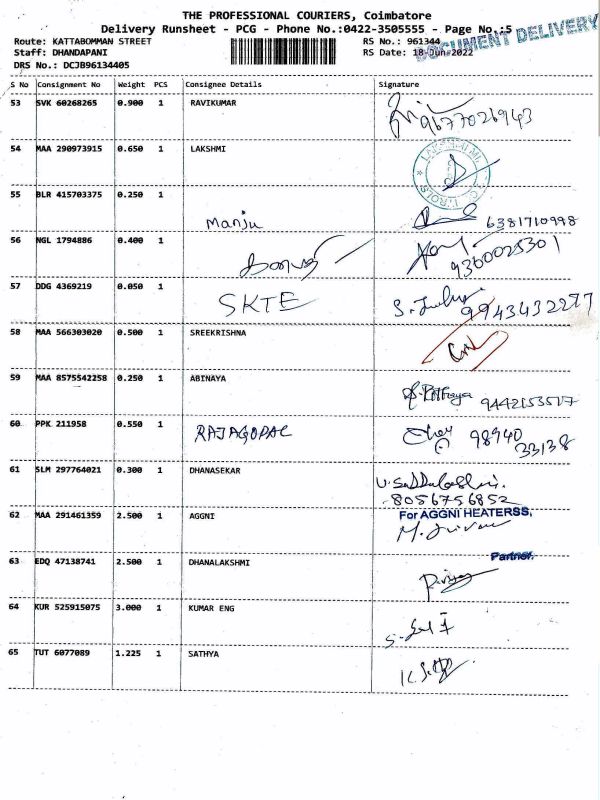 THE PROFESSIONAL COURIERS, Coimbatore
Delivery Runsheet - PCG - Phone No.:0422-3505555 - Page No.:5
Route: KATTABOMMAN STREET RS No.: 961344
Staff: DHANDAPANI RS Date: 18-Jun-2022
DOCUMENT DELIVERY
DRS No.: DCJB96134405
S No Consignment No Weight PCS Consignee Details Signature
53 SVK 60268265 0.900 1 RAVIKUMAR
9677026943
54 MAA 290973915 0.650 1 LAKSHMI
55 BLR 415703375 0.250 1
Manju 6381710998
56 NGL 1794886 0.400 1
9360025301
57 DDG 4369219 0.050 1
SKTE 9943432277
58 MAA 566303020 0.500 1 SREEKRISHNA
59 MAA 8575542258 0.250 1 ABINAYA
9442153517
60 PPK 211958 0.550 1 RAJAGOPAL 98940
33138
61 SLM 297764021 0.300 1 DHANASEKAR
8056756852
62 MAA 291461359 2.500 1 AGGNI For AGGNI HEATERSS,
Partner.
63 EDQ 47138741 2.500 1 DHANALAKSHMI
64 KUR 525915075 3.000 1 KUMAR ENG
65 TUT 6077089 1.225 1 SATHYA